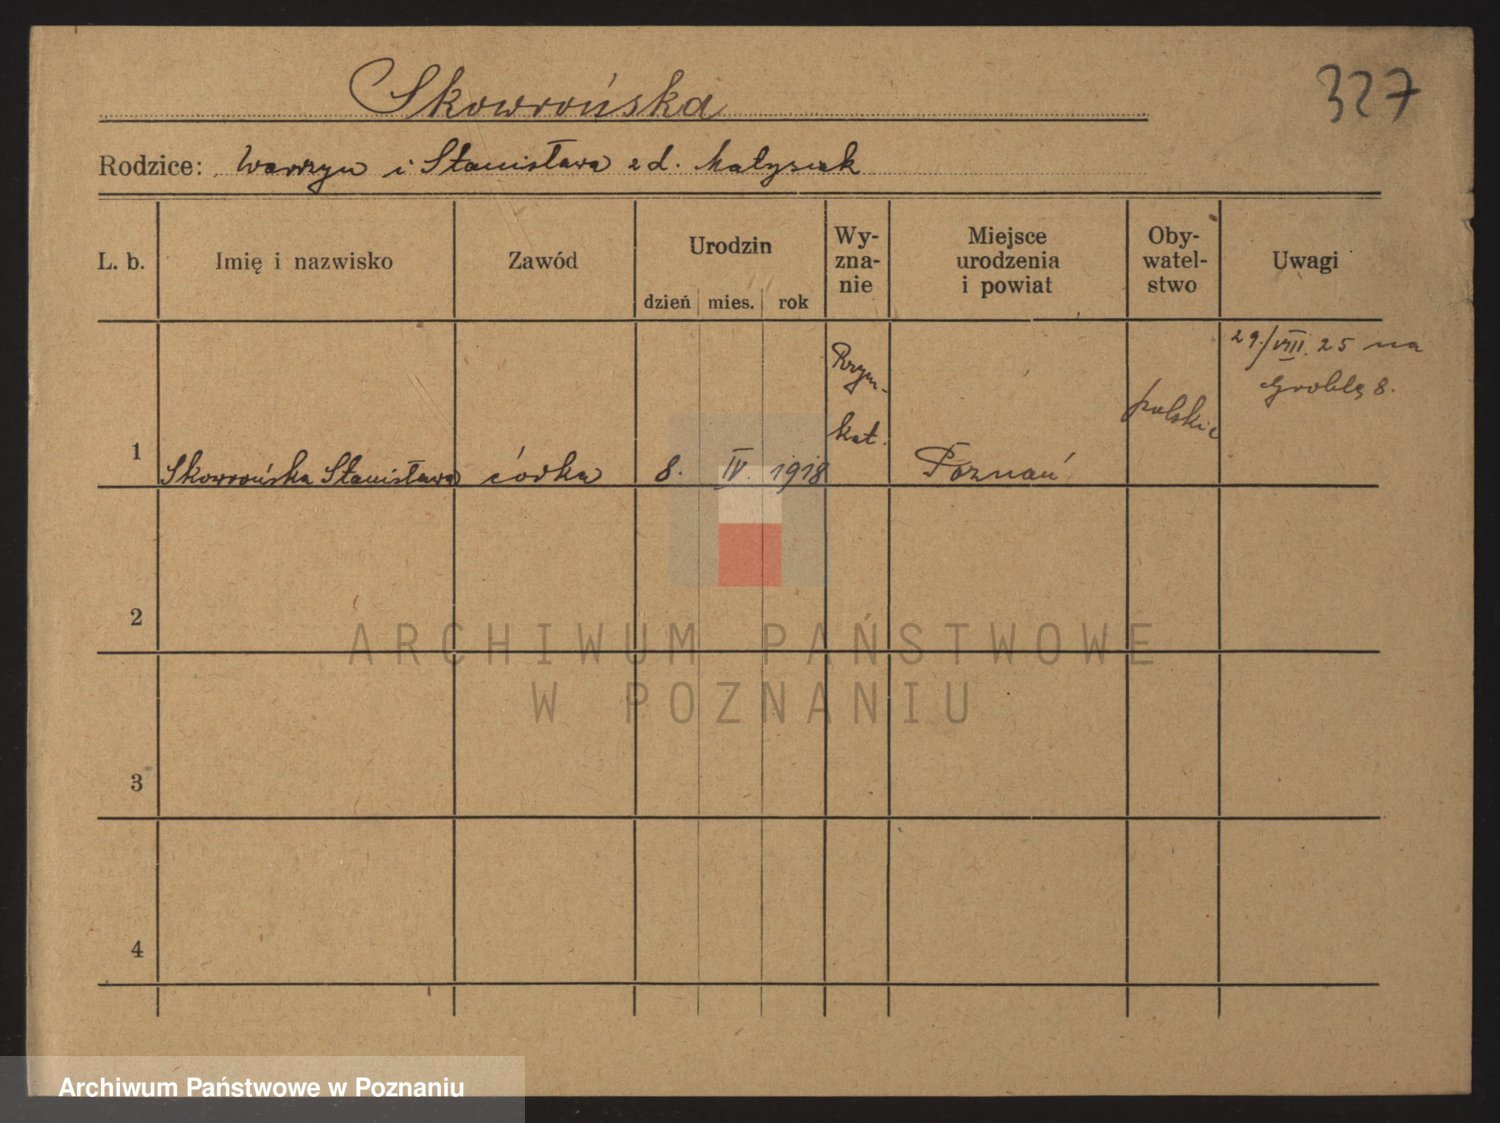 327
Skowrońska
Rodzice: Wawrzyn i Stanisława z d. Matysiak
L. b.
Imię i nazwisko
Zawód
Urodzin
dzień mies. rok
Wy-
zna-
nie
Miejsce
urodzenia
i powiat
Oby-
watel-
stwo
Uwagi
1
Skowrońska Stanisława
córka
8. IV. 1918
Rzym.-
kat.
Poznań
polskie
29./VIII. 25 na
Groblę 8.
2
3
4
ARCHIWUM PAŃSTWOWE
W POZNANIU
Archiwum Państwowe w Poznaniu